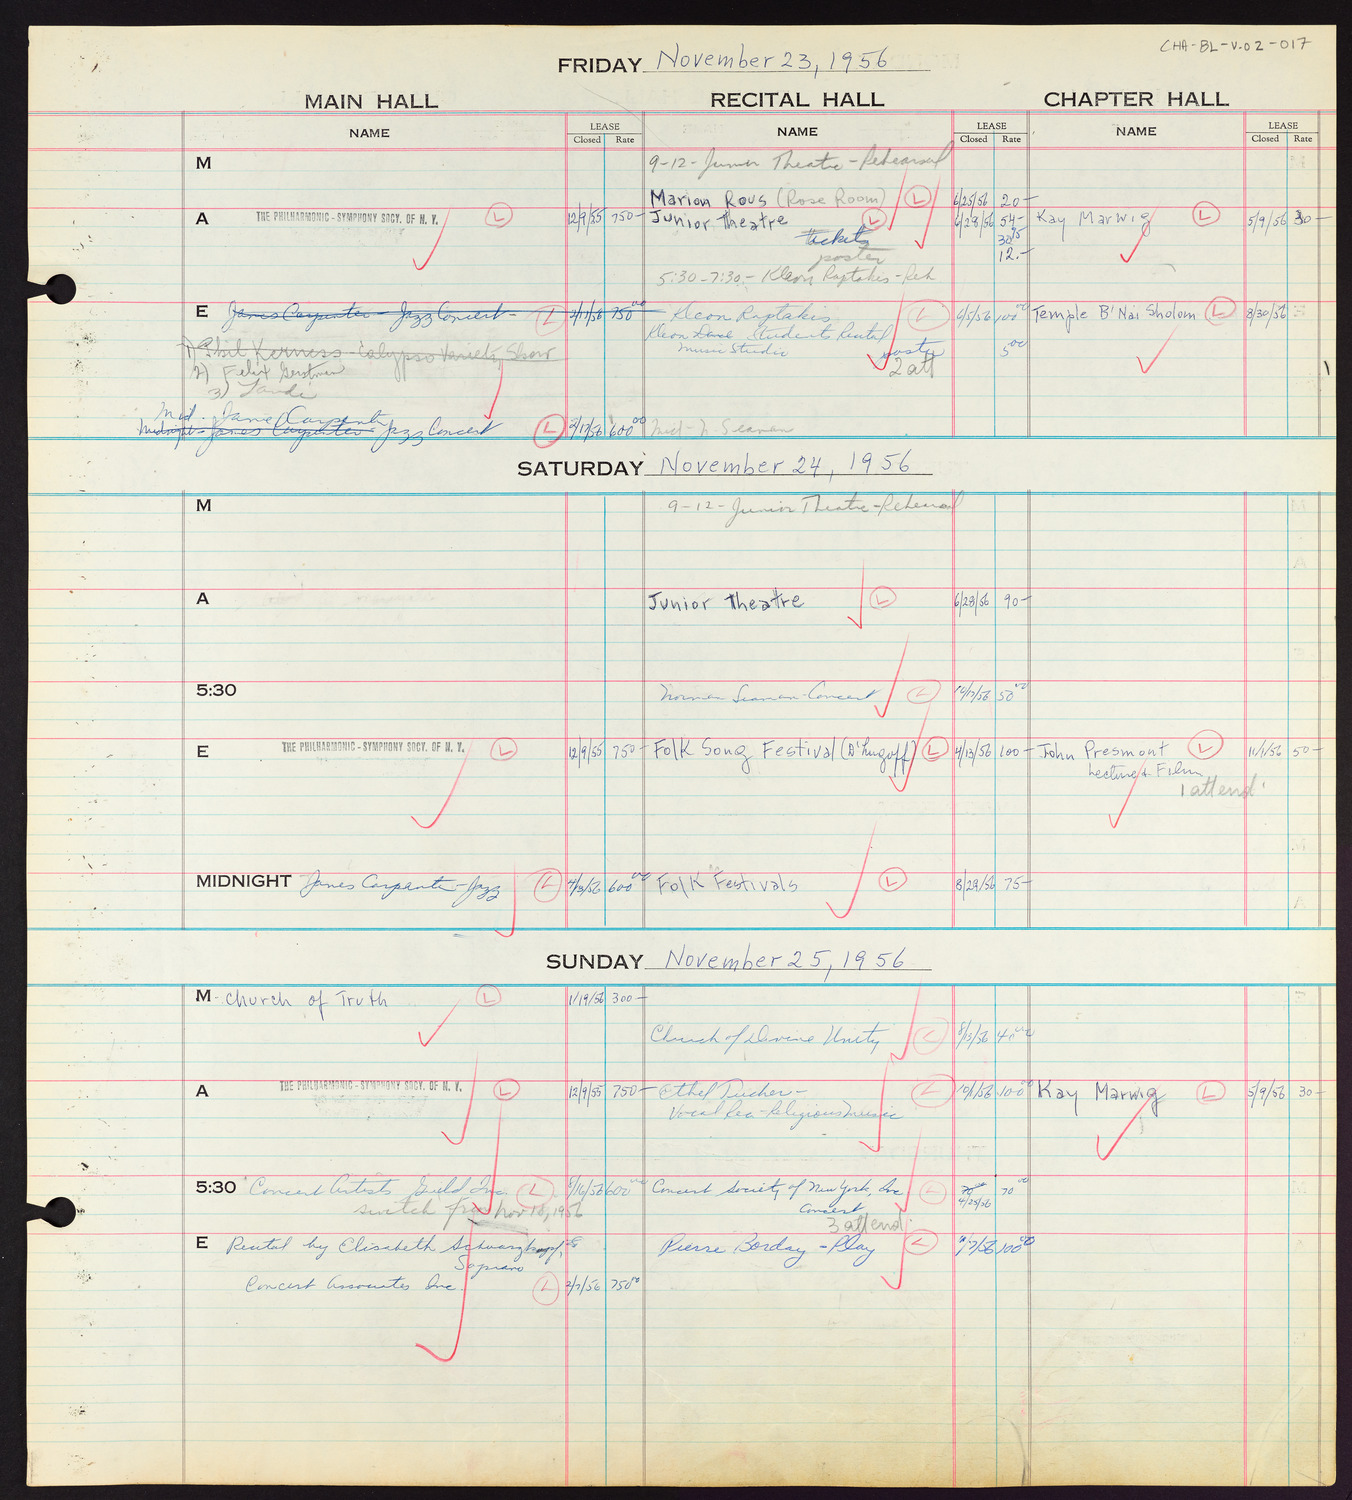 CHA-BL-V.02-017
FRIDAY November 23, 1956
MAIN HALL RECITAL HALL CHAPTER HALL
NAME LEASE Closed Rate NAME LEASE Closed Rate NAME LEASE Closed Rate
M 9-12- Junior Theatre - Rehearsal
Marion Rous (Rose Room) L 6/25/56 20-
A THE PHILHARMONIC-SYMPHONY SOCY. OF N. Y. L 12/9/55 750- Junior Theatre L 6/28/56 54- Kay Marwig L 5/9/56 30-
tickets
poster 12.-
5:30-7:30- Kleon Raptakis - Reh
E James Carpenter - Jazz Concert - L 750 00 Kleon Raptakis L 100 00 Temple B'Nai Sholom L 8/30/56
Students Recital
Music Studio 5 00
1) Phil Kerness - Calypso Variety Show
2 att
2) Felix Gerstman
3)
Mid. James Carpenter
Midnight - James Carpenter Jazz Concert L 600 00 Mid - N. Seaman
SATURDAY November 24, 1956
M 9-12- Junior Theatre - Rehearsal
A Junior Theatre L 6/28/56 90-
5:30 Norman Seaman - Concert L 50 00
E THE PHILHARMONIC-SYMPHONY SOCY. OF N. Y. L 12/9/55 750- Folk Song Festival (D'Lugoff) L 4/13/56 100- John Presmont L 11/1/56 50-
Lecture & Film
1 attend
MIDNIGHT James Carpenter - Jazz L 4/3/56 600 00 Folk Festivals L 8/29/56 75-
SUNDAY November 25, 1956
M - Church of Truth L 1/19/56 300-
Church of Devine Unity L 8/13/56 40 00
A THE PHILHARMONIC-SYMPHONY SOCY. OF N. Y. L 12/9/55 750- Ethel Pucher - L 10/1/56 100 00 Kay Marwig L 5/9/56 30-
Vocal Rec - Religious music
5:30 Concert Artists Guild Inc. L 600 00 Concert Society of New York, Inc L 70 00
switch from Nov 18, 1956 Concert 4/25/56
3 attend.
E Recital by Elisabeth Schwarzkopf, Pierre Borday - Play L 100 00
Soprano
Concert Associates Inc. L 2/7/56 750 00